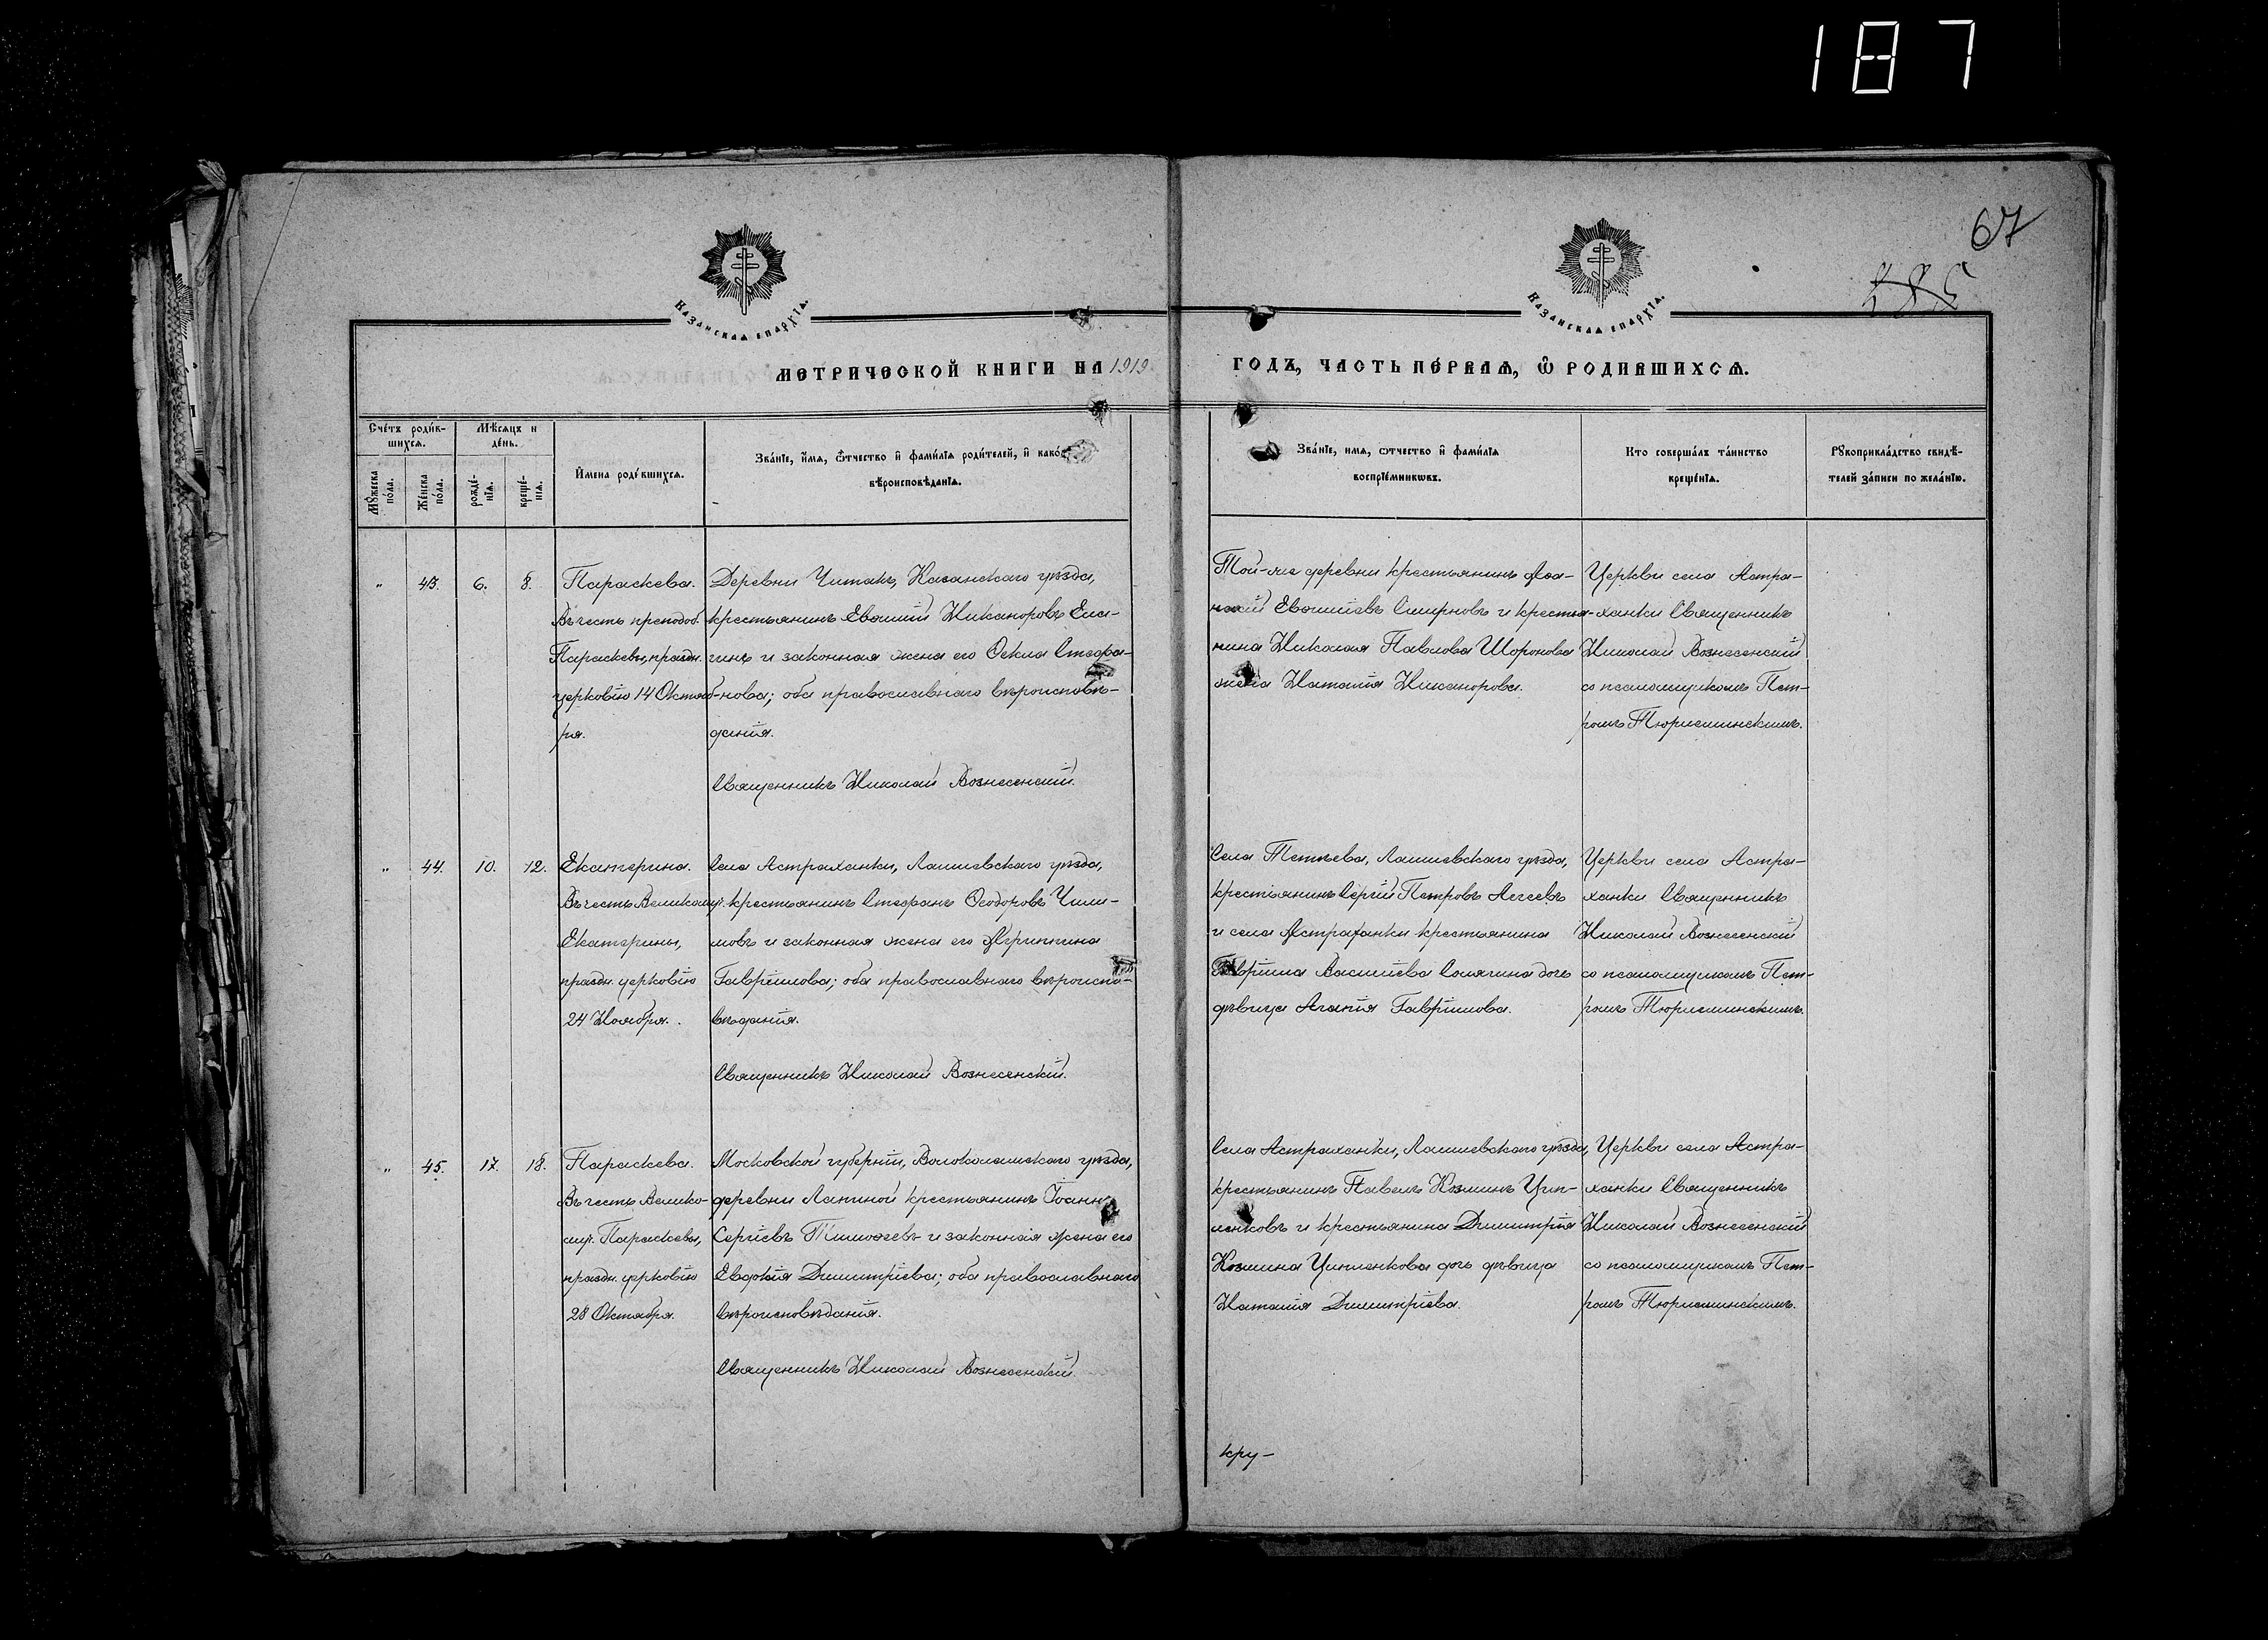 187
67
Казанская епархїѧ.
Казанская епархїѧ.
МЕТРИЧЕСКОЙ КНИГИ НА 1919
ГОДЪ, ЧАСТЬ ПЕ́РВАѦ, Ѡ̑ РОДИВШИХСѦ.
Сче́тъ роди́в-
шихсѧ.
Мѣ́сѧцъ и
де́нь.
Мꙋ́жеска
по́ла.
Же́нска
по́ла.
рожде́-
нїѧ.
креще́-
нїѧ.
И́мена роди́вшихсѧ.
Зва́нїе, и́мѧ, ѻ́тчество и҆ фами́лїѧ роди́телей, и҆ како́гѡ
вѣроисповѣ́данїѧ.
Зва́нїе, имѧ, ѻтчество и҆ фами́лїѧ
воспрїе́мникѡвъ.
Кто соверша́лъ та́инство
креще́нїѧ.
Рꙋкоприкла́дство свидѣ́-
телей за́писи по жела́нїю.
„ 43. 6. 8.
Параскева.
Въ честь преподоб.
Параскевы, праздн.
церковію 14 Октяб-
ря.
Деревни Читакъ, Казанскаго уѣзда,
крестьянинъ Евѳимій Никаноровъ Ела-
гинъ и законная жена его Ѳекла Стефа-
нова; оба православнаго вѣроисповѣ-
данія.
Священникъ Николай Вознесенскій.
Той-же деревни крестьянинъ Аѳа-
насій Евѳиміевъ Смирновъ и крестья-
нина Николая Павлова Шоронова
жена Наталія Никанорова.
Церкви села Астра-
ханки Священникъ
Николай Вознесенскій
со псаломщикомъ Пет-
ромъ Тюрнеминскимъ.
„ 44. 10. 12.
Екатерина.
Въ честь Великомуч.
Екатерины,
праздн. церковію
24 Ноября.
Села Астраханки, Лаишевскаго уѣзда,
крестьянинъ Стефанъ Ѳеодоровъ Чили-
мовъ и законная жена его Агриппина
Гавріилова; оба православнаго вѣроиспо-
вѣданія.
Священникъ Николай Вознесенскій.
Села Тетѣева, Лаишевскаго уѣзда,
крестьянинъ Сергій Петровъ Агеевъ
и села Астраханки крестьянина
Гавріила Василіева Солягина дочь
дѣвица Агапія Гавріилова.
Церкви села Астра-
ханки Священникъ
Николай Вознесенскій
со псаломщикомъ Пет-
ромъ Тюрнеминскимъ.
„ 45. 17. 18.
Параскева.
Въ честь Велико-
муч. Параскевы,
праздн. церковію
28 Октября.
Московской губерніи, Волоколамскаго уѣзда,
деревни Лапиной крестьянинъ Іоаннъ
Сергіевъ Тимоѳеевъ и законная жена его
Евдокія Димитріева; оба православнаго
вѣроисповѣданія.
Священникъ Николай Вознесенскій
Села Астраханки, Лаишевскаго уѣзда,
крестьянинъ Павелъ Козминъ Цип-
ленковъ и крестьянина Димитрія
Козмина Ципленкова дочь дѣвица
Наталія Димитріева.
Церкви села Астра-
ханки Священникъ
Николай Вознесенскій
со псаломщикомъ Пет-
ромъ Тюрнеминскимъ.
кру-